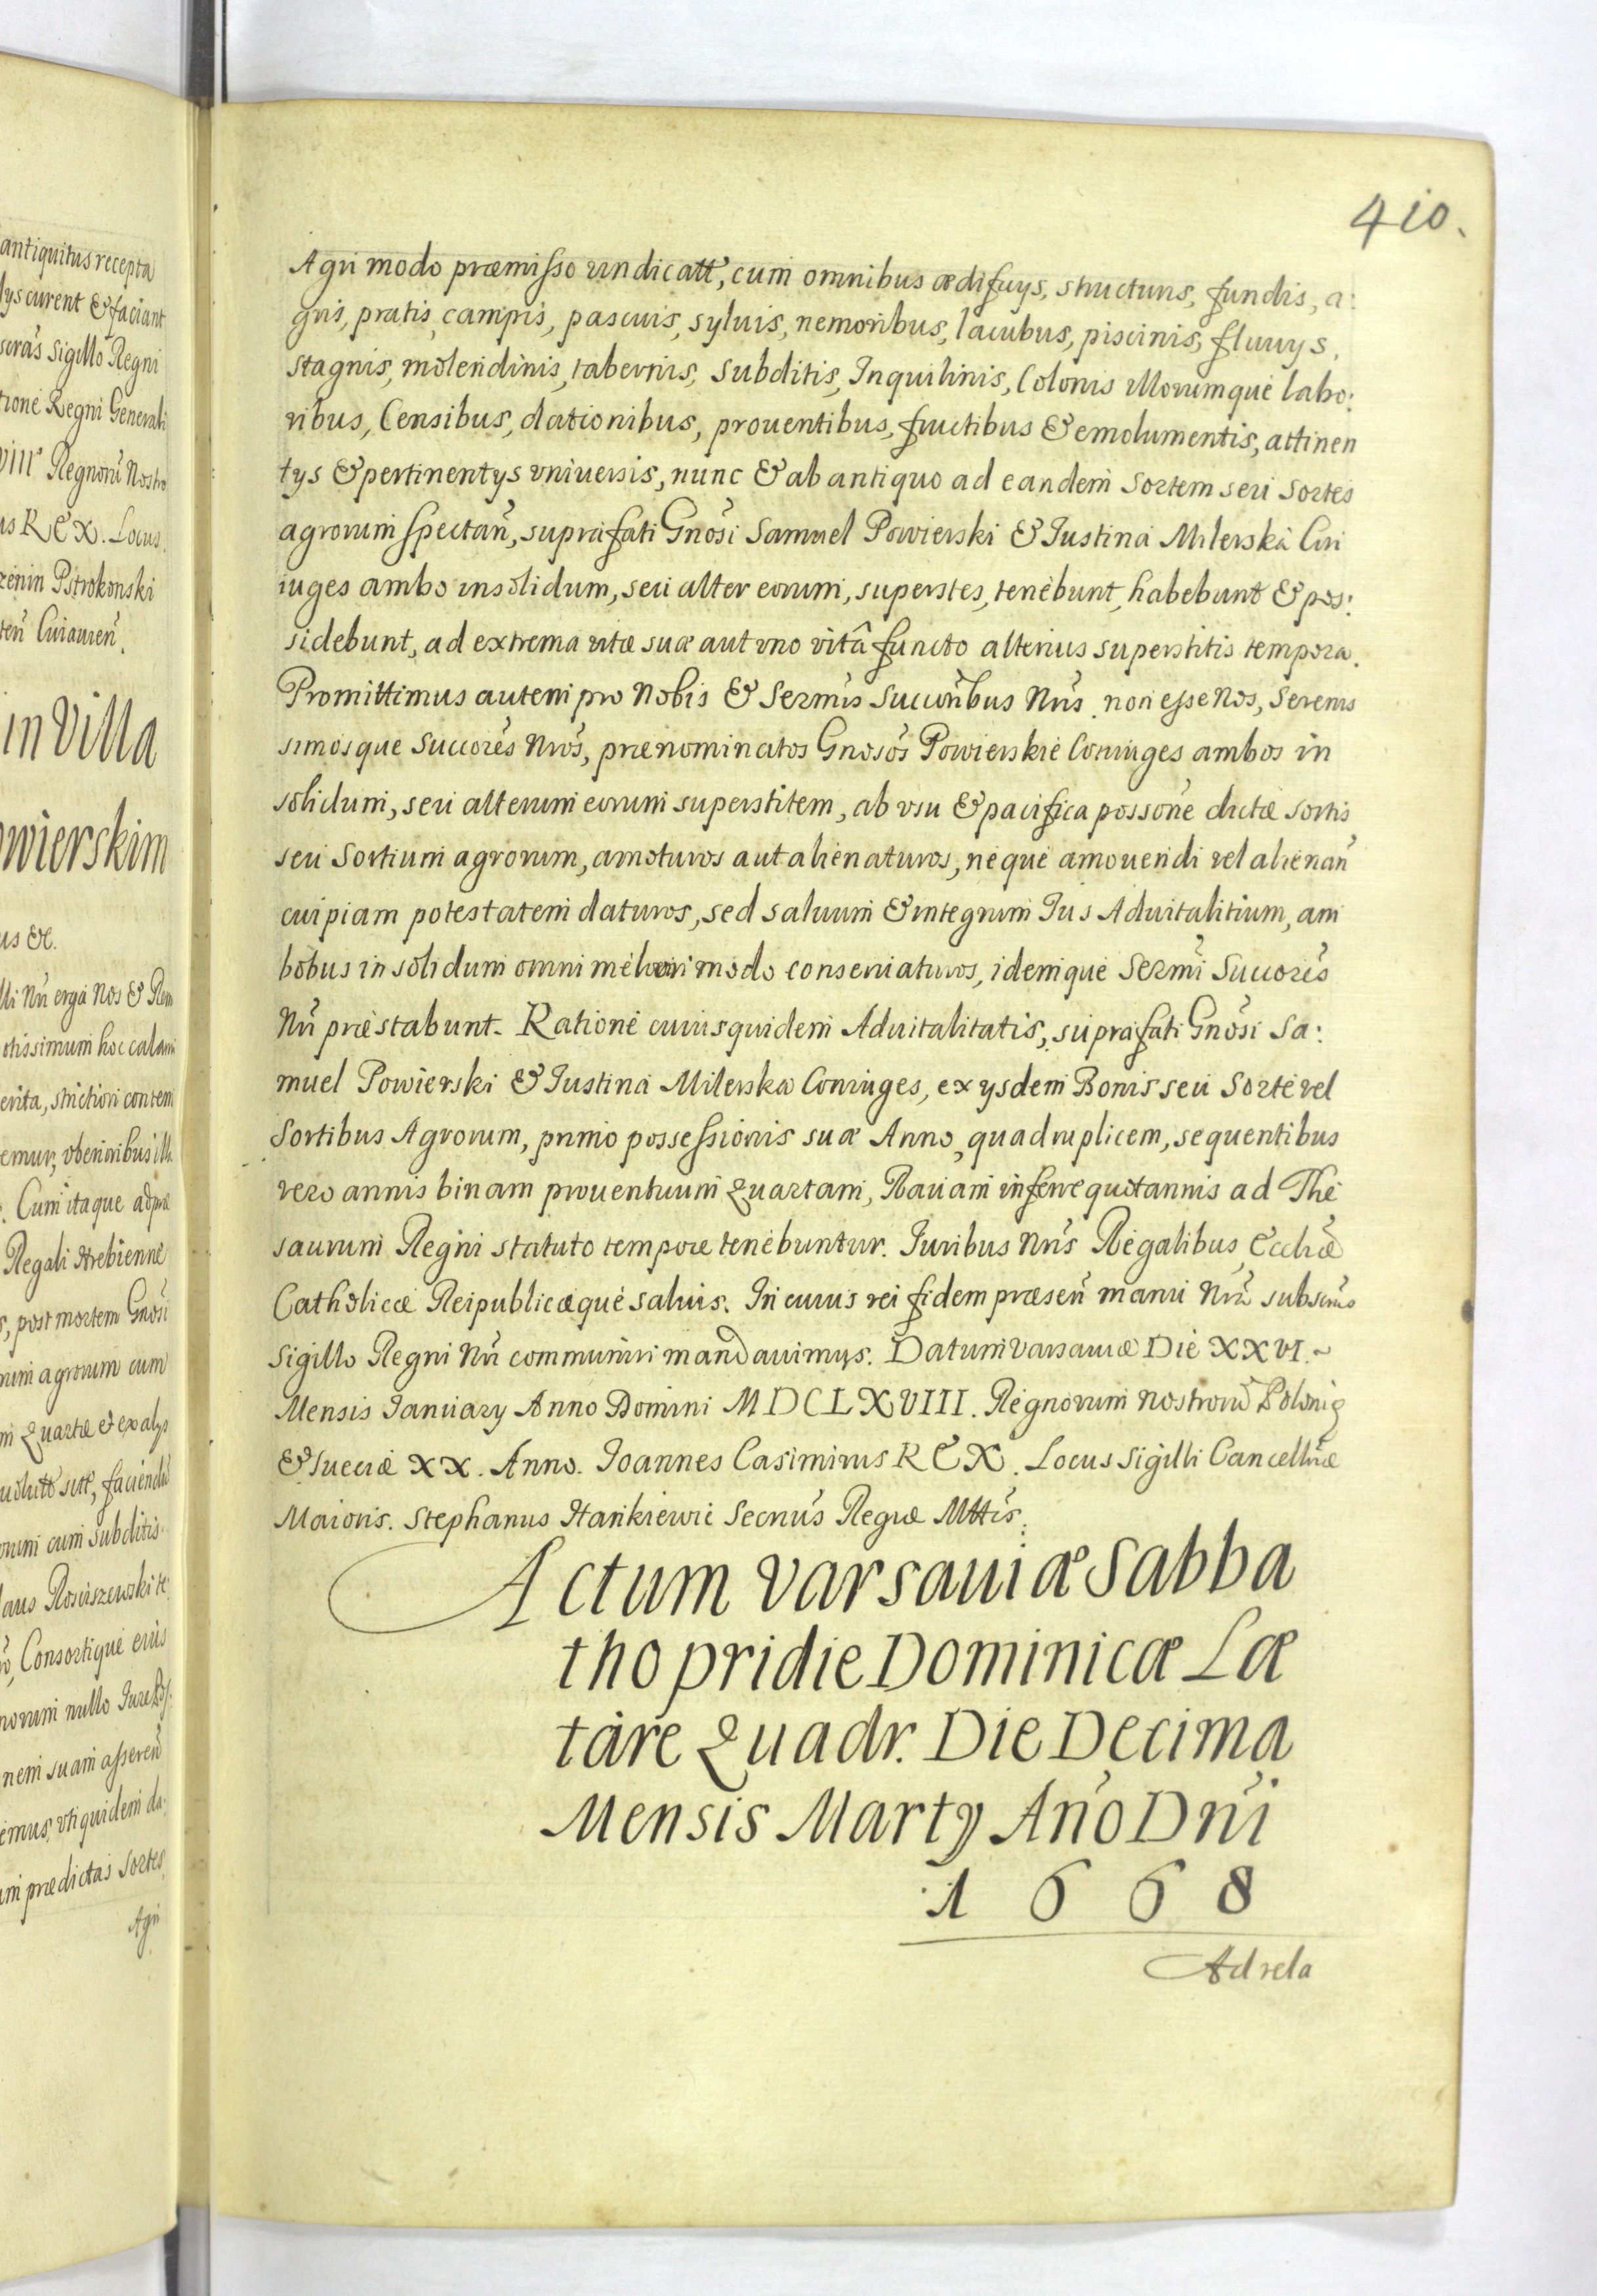 antiquitus recepta
curent & faciant
Sigillo Regni
Regni Generali
VIII Regnorũ Nostro
us REX. Locus
Pstrokonski
Cuiauien̄.
in Villa
owierskim
us &c.
Nr̄i erga Nos & Rem
otissimum hoc calami
strictiori contem
emur, vberioribus ill
Cum itaque adpræ
Regali Strebienne
s, post mortem Gnōsi
agrorum cum
m Quartæ et ex alys
faciendũ
orum cum subditis
laus Rosciszewski te
Consortique eius
norum nullo Jure
nem suam asseren̄
emus, vti quidem da:
um prædictas sortes
Agri
410.
Agri modo præmisso vindicatt̄, cum omnibus ædificys, structuris, fundis, a:
gris, pratis, campis, pascuis, syluis, nemoribus, lacubus, piscinis, fluuys,
stagnis, molendinis, tabernis, subditis, Inquilinis, Colonis illorumque labo:
ribus, Censibus, dationibus, prouentibus, fructibus & emolumentis, attinen
tys & pertinentys vniuersis, nunc & ab antiquo ad eandem sortem seu sortes
agrorum spectan̄, suprafati Gnōsi Samuel Powierski & Iustina Milerska Con
iuges ambo insolidum, seu alter eorum, superstes, tenebunt, habebunt & pos:
sidebunt, ad extrema vitæ suæ aut vno vitâ functo alterius superstitis tempora.
Promittimus autem pro Nobis & Sermīs Succōribus Nrīs non esse Nos, Sereniss
simosque Succōres Nrōs, prænominatos Gnosōs Powierskie Coniuges ambos in
solidum, seu alterum eorum superstitem, ab vsu & pacifica possōne dictæ sortis
seu Sortium agrorum, amoturos aut alienaturos, neque amouendi vel alienan̄
cuipiam potestatem daturos, sed saluum & integrum Ius Aduitalitium, am
bobus insolidum omni meliori modo conseruaturos, idemque Sermī Succōres
Nrī præstabunt. Ratione cuius quidem Aduitalitatis, suprafati Gnōsi Sa:
muel Powierski & Iustina Milerska Coniuges, ex ysdem Bonis seu Sorte vel
Sortibus Agrorum, primo possessionis suæ Anno, quadruplicem, sequentibus
vero annis binam prouentuum Quartam, Rauam inferre quotannis ad The
saurum Regni statuto tempore tenebuntur. Iuribus Nrīs Regalibus, Ecclīæ
Catholicæ Reipublicæque saluis. In cuius rei fidem præsen̄ manu Nrā subscrīs
Sigillo Regni Nrī communiri mandauimus. Datum Varsauiæ Die XXVI. ~
Mensis January Anno Domini MDCLXVIII. Regnorum nostrorũ Poloniæ
& Sueciæ XX. Anno. Ioannes Casimirus REX. Locus Sigilli Cancellrīæ
Maioris. Stephanus Hankiewic Secrīus Regiæ Mttīs.
Actum Varsauiæ Sabba
tho pridie Dominicæ Læ
tare Quadr. Die Decima
Mensis Marty Año Dn̄i
1668
Ad rela